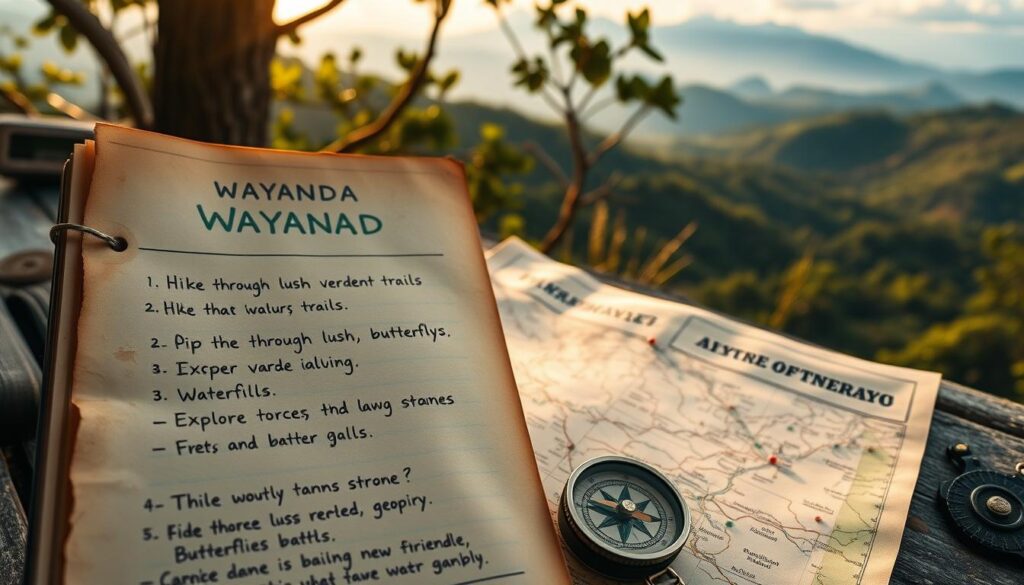 WAYANDA
WAYANAD
1. Hike through lush verdent trails
2. Hke that walurs trails.
2. Pip the through lush, butterflys.
3. Excper varde ialving.
3. Waterfills.
– Explore torces, thd lawg stames
– Frets and batter galls.
4– Thile woutly tanns strone?
5. Fide thoree luss rerled, geopiry.
Butterflies battls.
– Carnce dane is bailng new friendle,
what fave watr ganbly.
ALYTRE OFTNERAYO